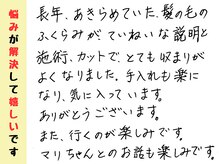 悩みが解決して嬉しいです
長年、あきらめていた、髪の毛の
ふくらみがていねいな説明と
施術、カットで、とても収まりが
よくなりました。手入れも楽に
なり、気に入って います。
ありがとうございます。
また、行くのが楽しみです。
マリちゃんとのお話も楽しみです。